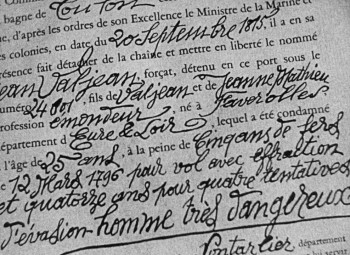 bagne de Toulon
ue, d'après les ordres de son Excellence le Ministre de la Marine et
es colonies, en date du 20 Septembre 1815, il a en sa
résence fait détacher de la chaine et mettre en liberté le nommé
ean Valjean, forçat, détenu en ce port sous le
uméro 24601, fils de Valjean et de Jeanne Mathieu
rofession émondeur, né à Faverolles
épartement d'Eure & Loir, lequel a été condamné
à l'âge de 25 ans, à la peine de Cinq ans de fers
le 12 Mars 1796 pour vol avec effraction
et quatorze ans pour quatre tentatives
d'évasion homme très dangereux
Pontarlier département